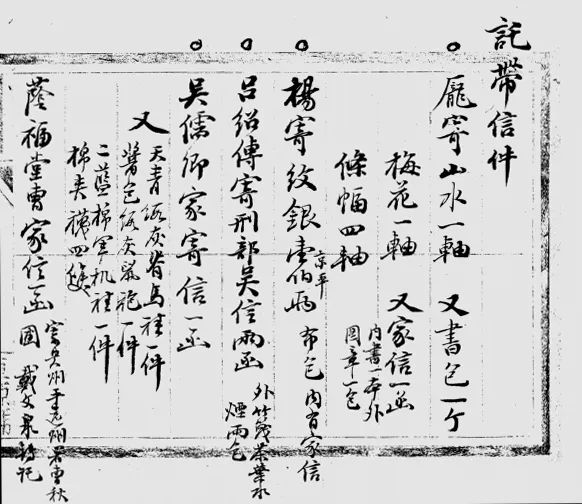 託帶信件
龐寄山水一軸 又書包一个
梅花一軸 又家信一函
內書一本外
圖章一包
條幅四軸
楊寄紋銀壹伯兩 京平 布包 內有家信
呂紹傳寄刑部吳信兩函 外竹 茶葉 煙兩包
吳儒卿家寄信一函
又 天青 灰脊馬褂一件
醬色 灰鼠袍一件
二藍棉軍机褂一件
棉夾襪四雙
蔭福堂曹家信一函
寄 州 曹秋
戴文泉 托